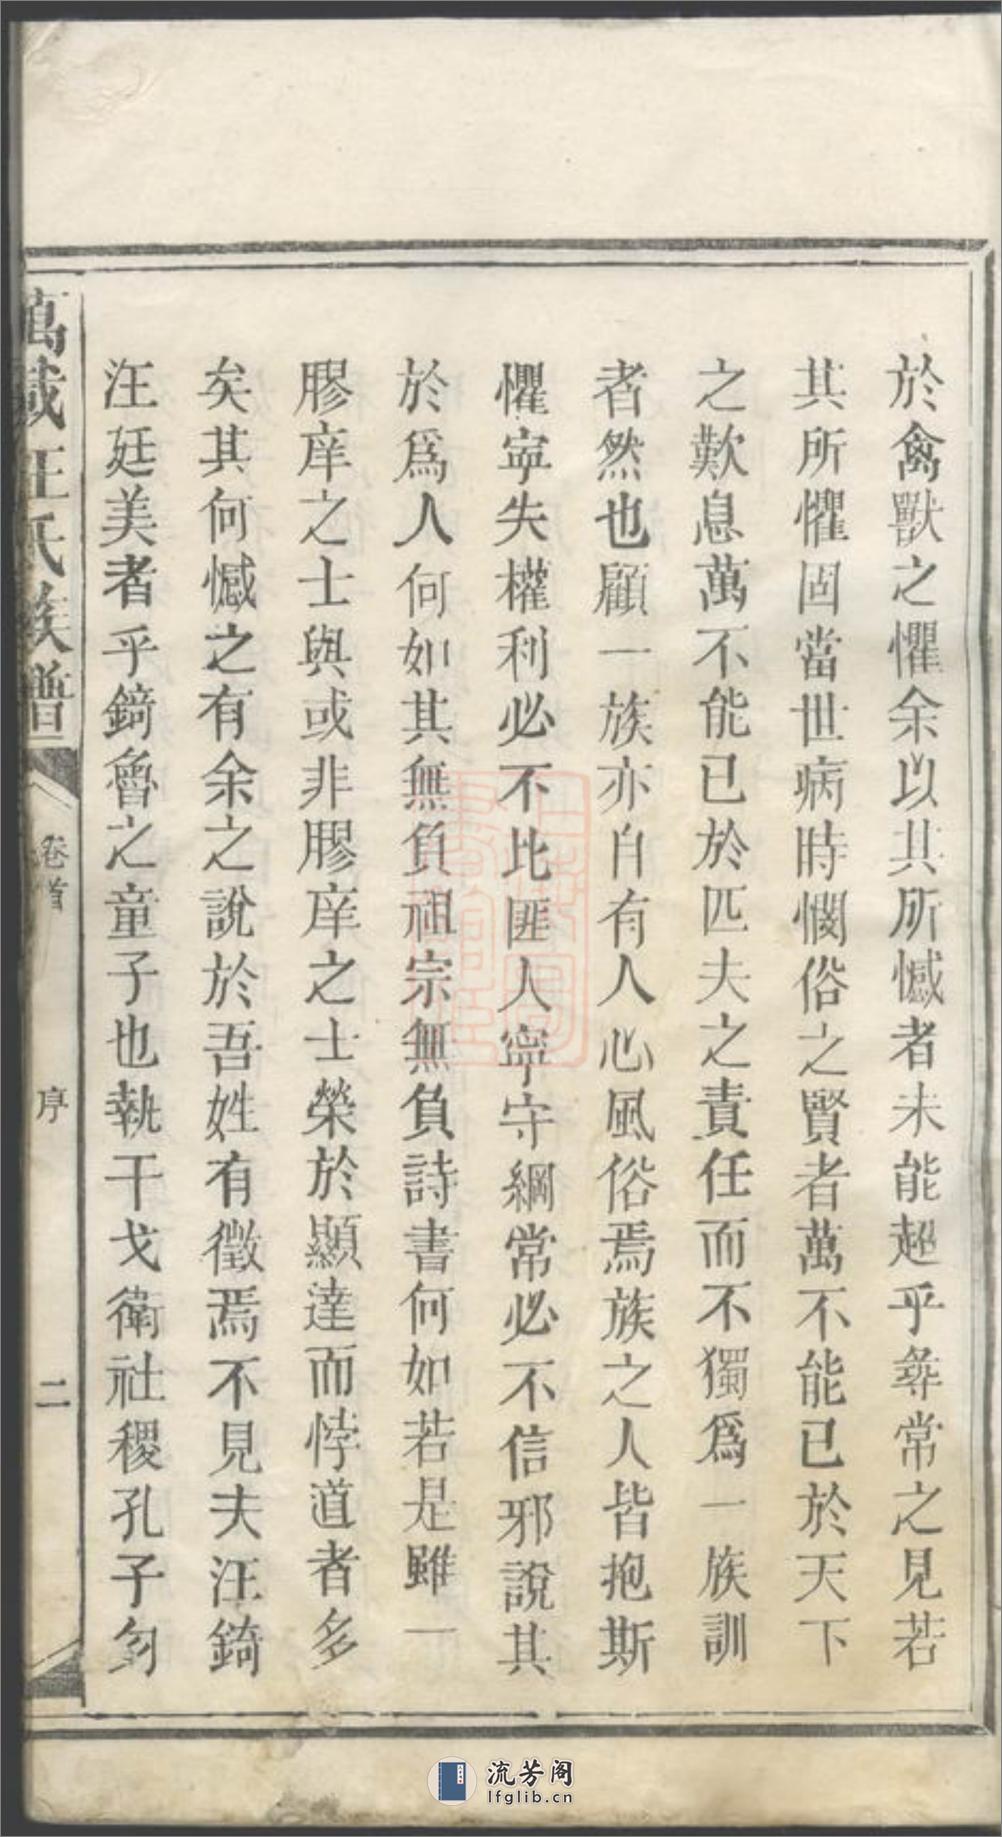 於禽獸之懼余以其所憾者未能超乎尋常之見若
其所懼固當世病時憫俗之賢者萬不能已於天下
之歎息萬不能已於匹夫之責任而不獨爲一族訓
者然也顧一族亦自有人心風俗焉族之人皆抱斯
懼寧失權利必不比匪人寧守綱常必不信邪說其
於爲人何如其無負祖宗無負詩書何如若是雖一
膠庠之士與或非膠庠之士榮於顯達而悖道者多
矣其何憾之有余之說於吾姓有徵焉不見夫汪錡
汪廷美者乎錡魯之童子也執干戈衛社稷孔子勿
萬載汪氏族譜
卷首
序
二
流芳阁
lfglib.cn